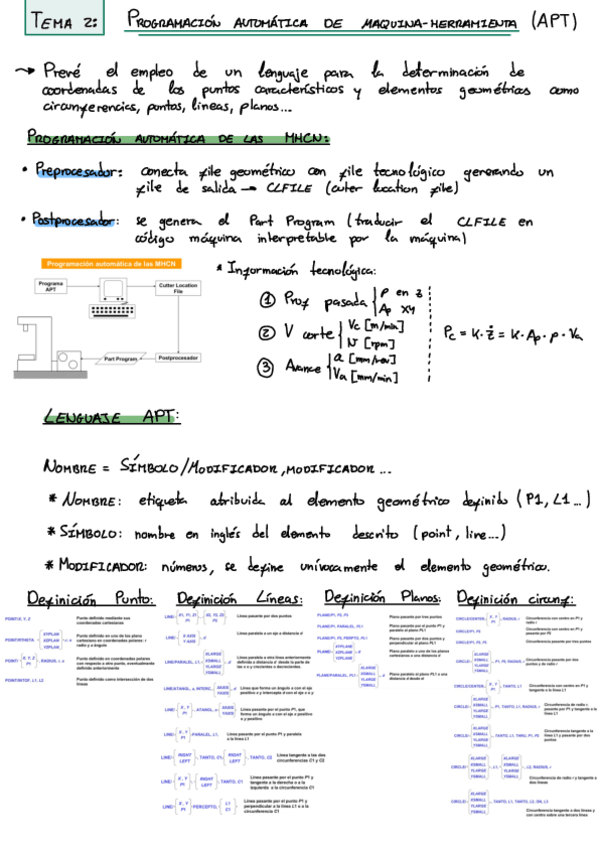 TEMA 2: PROGRAMACIÓN AUTOMÁTICA DE MAQUINA-HERRAMIENTA (APT)
→ Prevé el empleo de un lenguaje para la determinación de
coordenadas de los puntos característicos y elementos geométricos como
circunferencias, puntos, lineas, planos...
PROGRAMACIÓN AUTOMÁTICA DE LAS MHCN:
• Preprocesador: conecta file geométrico con file tecnológico generando un
file de salida → CLFILE (cuter location file)
• Postprocesador: se genera el Part Program (traducir el CLFILE en
código máquina interpretable por la máquina)
Programación automática de las MHCN
Programa APT
Cutter Location File
Part Program
Postprocesador
* Información tecnológica:
① Prof pasada { P en z
Ap XY
② V corte { Vc [m/min]
N [rpm]
③ Avance { a [mm/rev]
Va [mm/min]
Pc = K · ż = K · Ap · p · Va
LENGUAJE APT:
NOMBRE = SÍMBOLO/MODIFICADOR, MODIFICADOR ...
* NOMBRE: etiqueta atribuida al elemento geométrico definido (P1, L1...)
* SÍMBOLO: nombre en inglés del elemento descrito (point, line...)
* MODIFICADOR: números, se define unívocamente el elemento geométrico.
Definición Punto:
POINT/X, Y, Z Punto definido mediante sus coordenadas cartesianas
Punto definido en uno de los planos cartesiano en coordenadas polares: r radio y α ángulo
Punto definido en coordenadas polares con respecto a otro punto, eventualmente definido anteriormente
POINT/INTOF, L1, L2 Punto definido como intersección de dos líneas
Definición Líneas:
Línea pasante por dos puntos
Línea paralela a un eje a distancia d
Línea paralela a otra línea anteriormente definida a distancia d desde la parte de las x o y crecientes o decrecientes.
Línea que forma un ángulo α con el eje positivo x y intercepta d con el eje x o y
Línea pasante por el punto P1, que forma un ángulo α con el eje positivo x o y positivo
Línea pasante por el punto P1 y paralela a la línea L1
Línea tangente a las dos circunferencias C1 y C2
Línea pasante por el punto P1 y tangente a la derecha o a la izquierda a la circunferencia C1
Línea pasante por el punto P1 y perpendicular a la línea L1 o a la circunferencia C1
Definición Planos:
PLANE/P1, P2, P3 Plano pasante por tres puntos
PLANE/P1, PARALEL, PL1 Plano pasante por el punto P1 y paralelo al plano PL1
PLANE/P1, P2, PERPTO, PL1 Plano pasante por dos puntos y perpendicular al plano PL1
Plano paralelo a uno de los planos cartesianos a una distancia d
Plano paralelo al plano PL1 a una distancia d desde él
Definición circunf:
Circunferencia con centro en P1 y radio r
Circunferencia con centro en P1 y pasante por P2
Circunferencia pasante por tres puntos
Circunferencia pasante por dos puntos y de radio r
Circunferencia con centro en P1 y tangente a la línea L1
Circunferencia de radio r pasante por P1 y tangente a la línea L1
Circunferencia tangente a la línea L1 y pasante por dos puntos
Circunferencia de radio r y tangente a dos líneas
Circunferencia tangente a dos líneas y con centro sobre una tercera línea